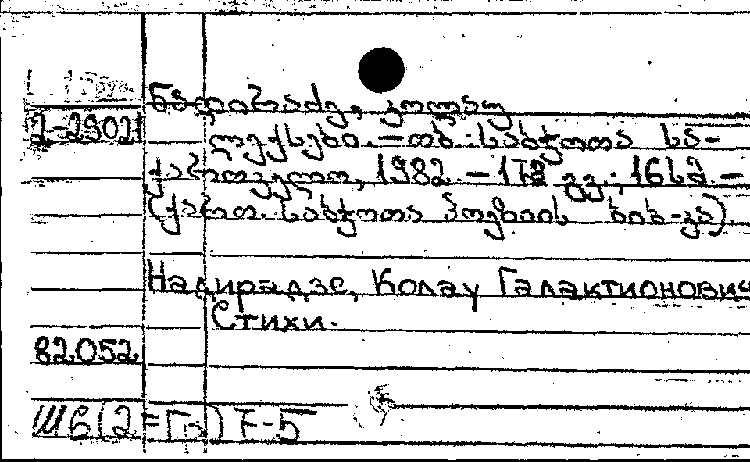 ნადირაძე, კოლაუ
2-2902
ლექსები. — თბ.: საბჭოთა სა-
ქართველო, 1982. — 172 გვ.; 16სმ. —
(ქართ. საბჭოთა პოეზიის ბიბ-კა).
Надирадзе, Колау Галактионович
Стихи.
82.052
Ш6(2=Гр)7-5